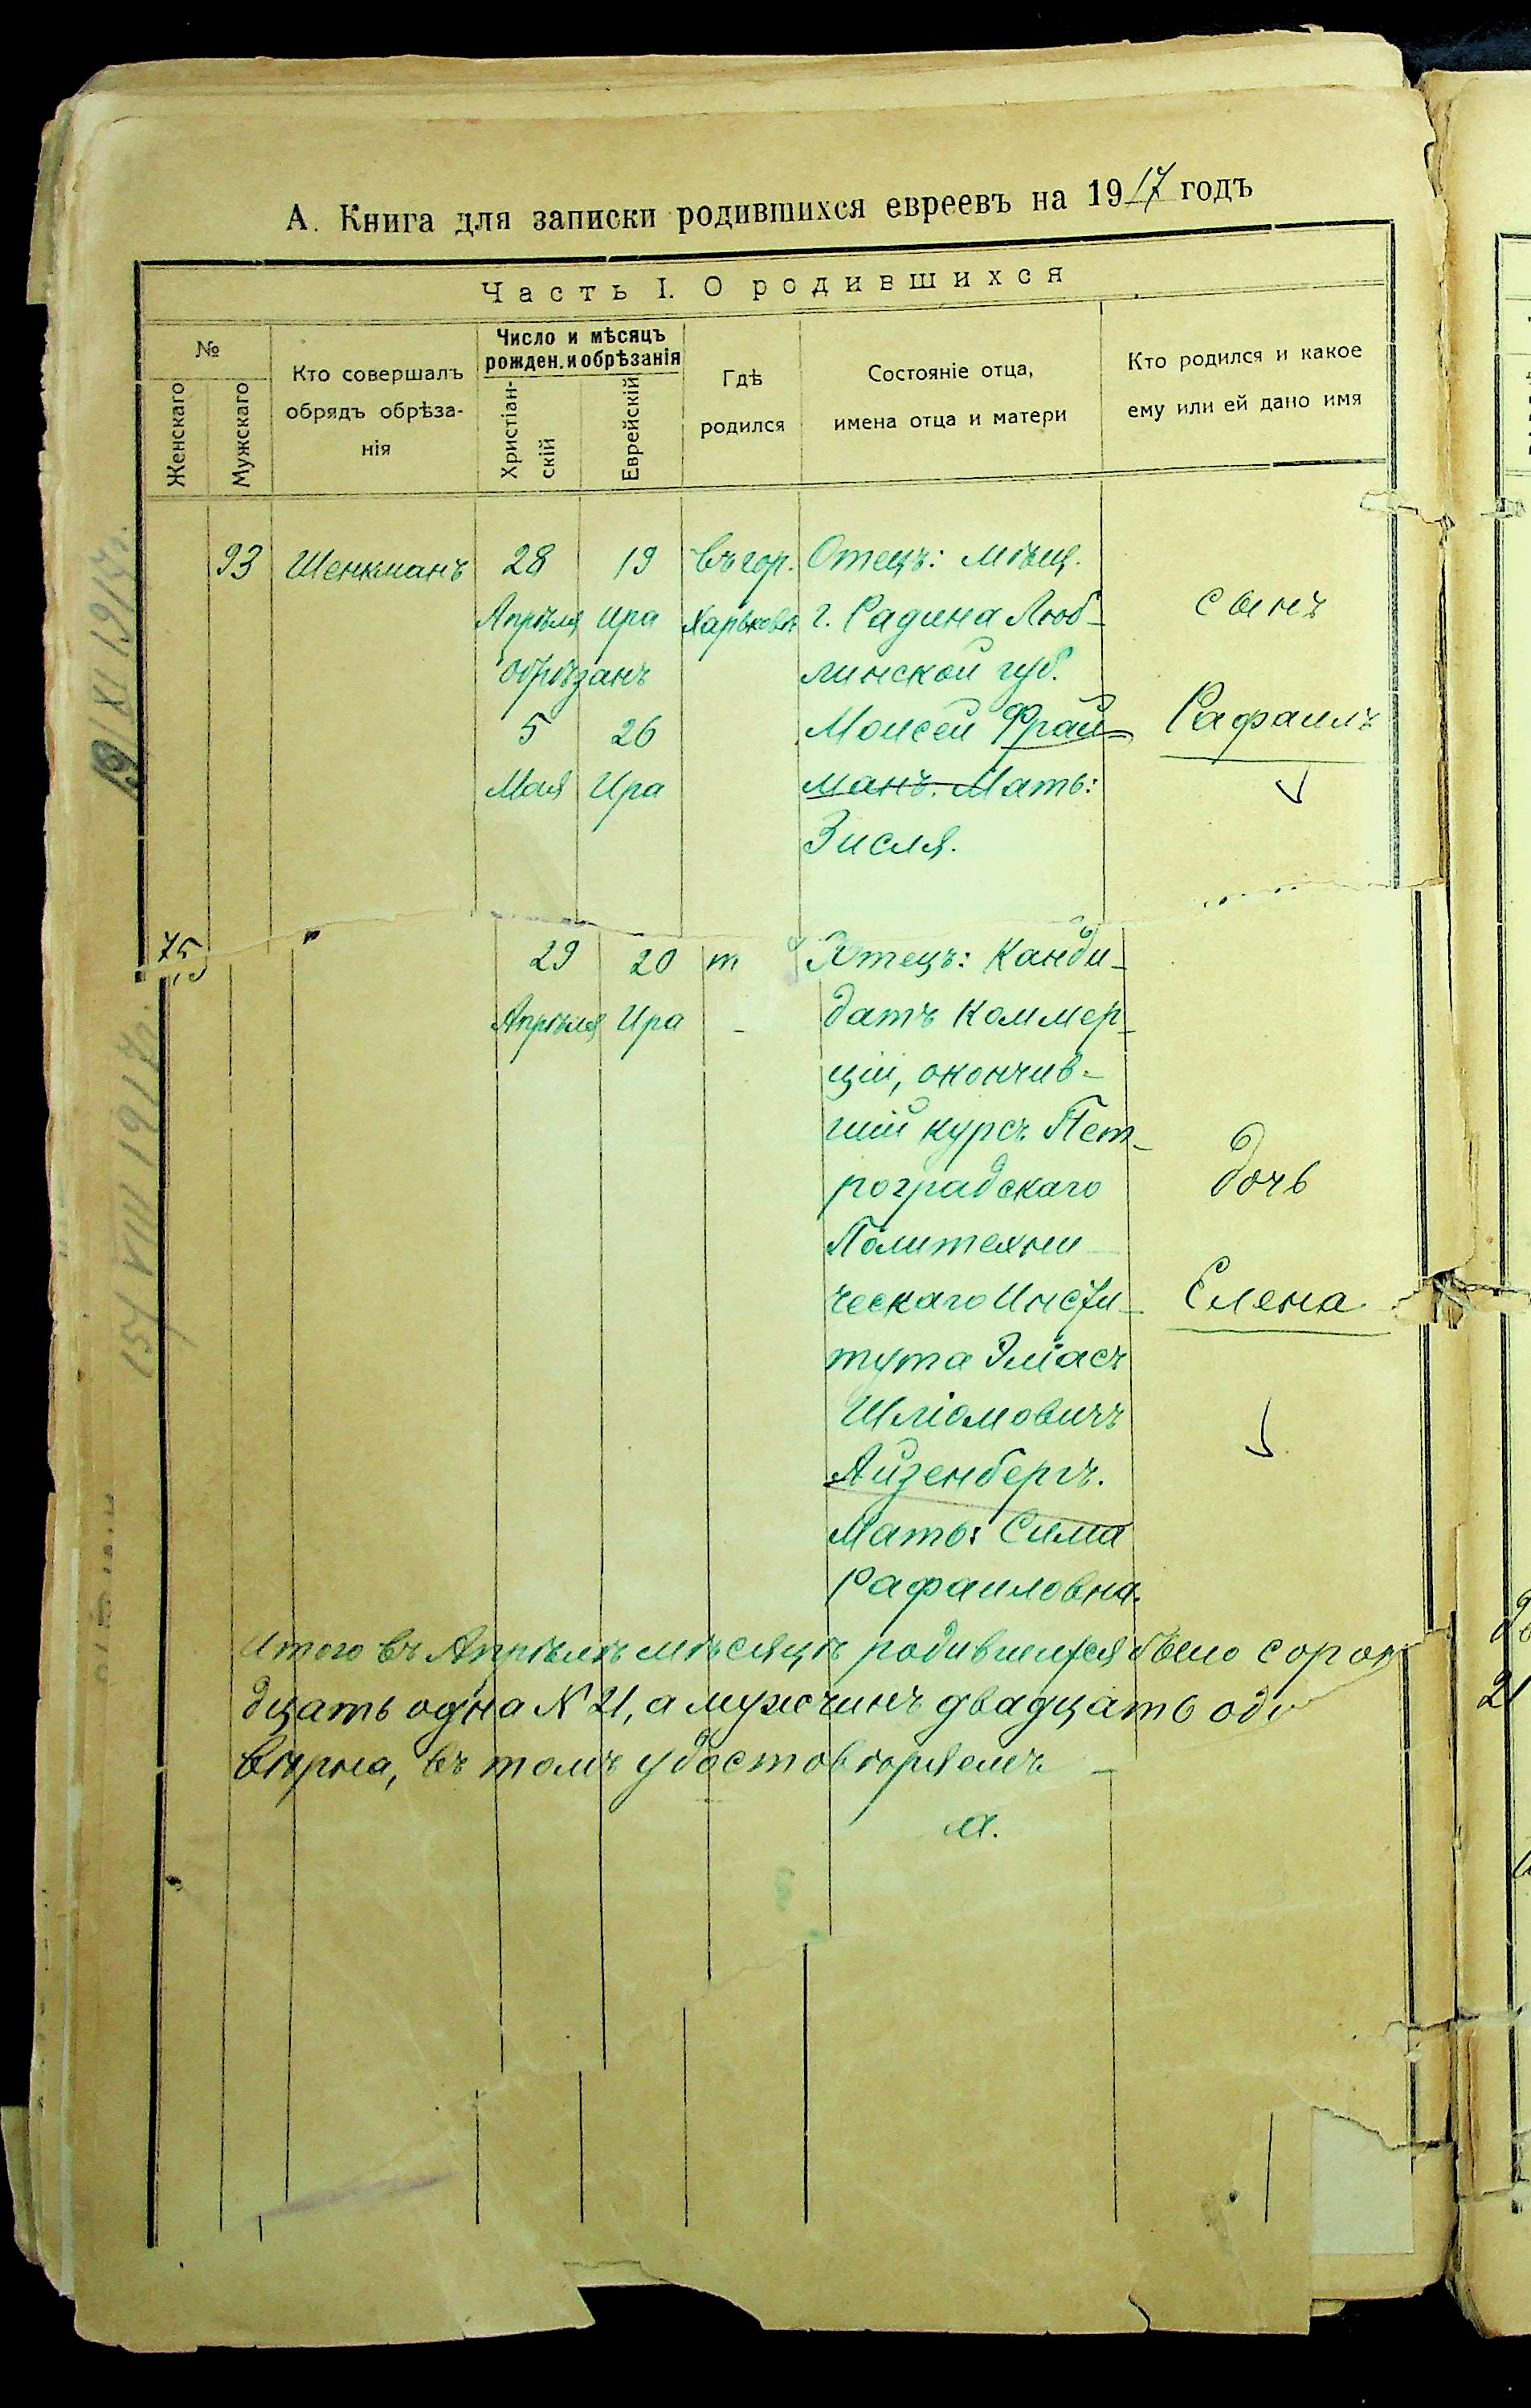 А. Книга для записки родившихся евреевъ на 1917 годъ
Часть I. О родившихся
№
Женскаго
Мужскаго
Кто совершалъ
обрядъ обрѣза-
нія
Число и мѣсяцъ
рожден. и обрѣзанія
Христіан-
скій
Еврейскій
Гдѣ
родился
Состояніе отца,
имена отца и матери
Кто родился и какое
ему или ей дано имя
93
Шенкманъ
28
Апрѣля
19
Ира
обрѣзанъ
5
Мая
26
Ира
въ гор.
Харьковѣ
Отецъ: мѣщ.
г. Радина Люб-
линской губ.
Моисей Фрай-
манъ. Мать:
Зисля.
сынъ
Рафаилъ
75
29
Апрѣля
20
Ира
Отецъ: Канди-
датъ Коммер-
ціи, окончив-
шій курсъ Пет-
роградскаго
Политехни-
ческаго Инсти-
тута Эліасъ
Шліомовичъ
Айзенбергъ.
Мать: Сима
Рафаиловна.
дочь
Елена
Итого въ Апрѣлѣ мѣсяцѣ родившихся было сорок
дцать одна № 21, а мужчинъ двадцать оди
вѣрна, въ томъ удостовѣряемъ
19/XI 1917г.
15/VIII 1917г.